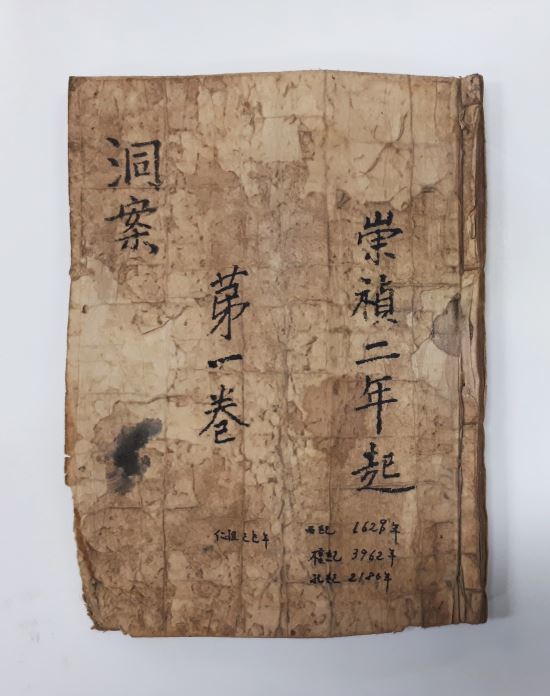 崇禎二年起
苐一卷
洞案
西紀 1629年
檀紀 3962年
孔紀 2180年
仁祖己巳年